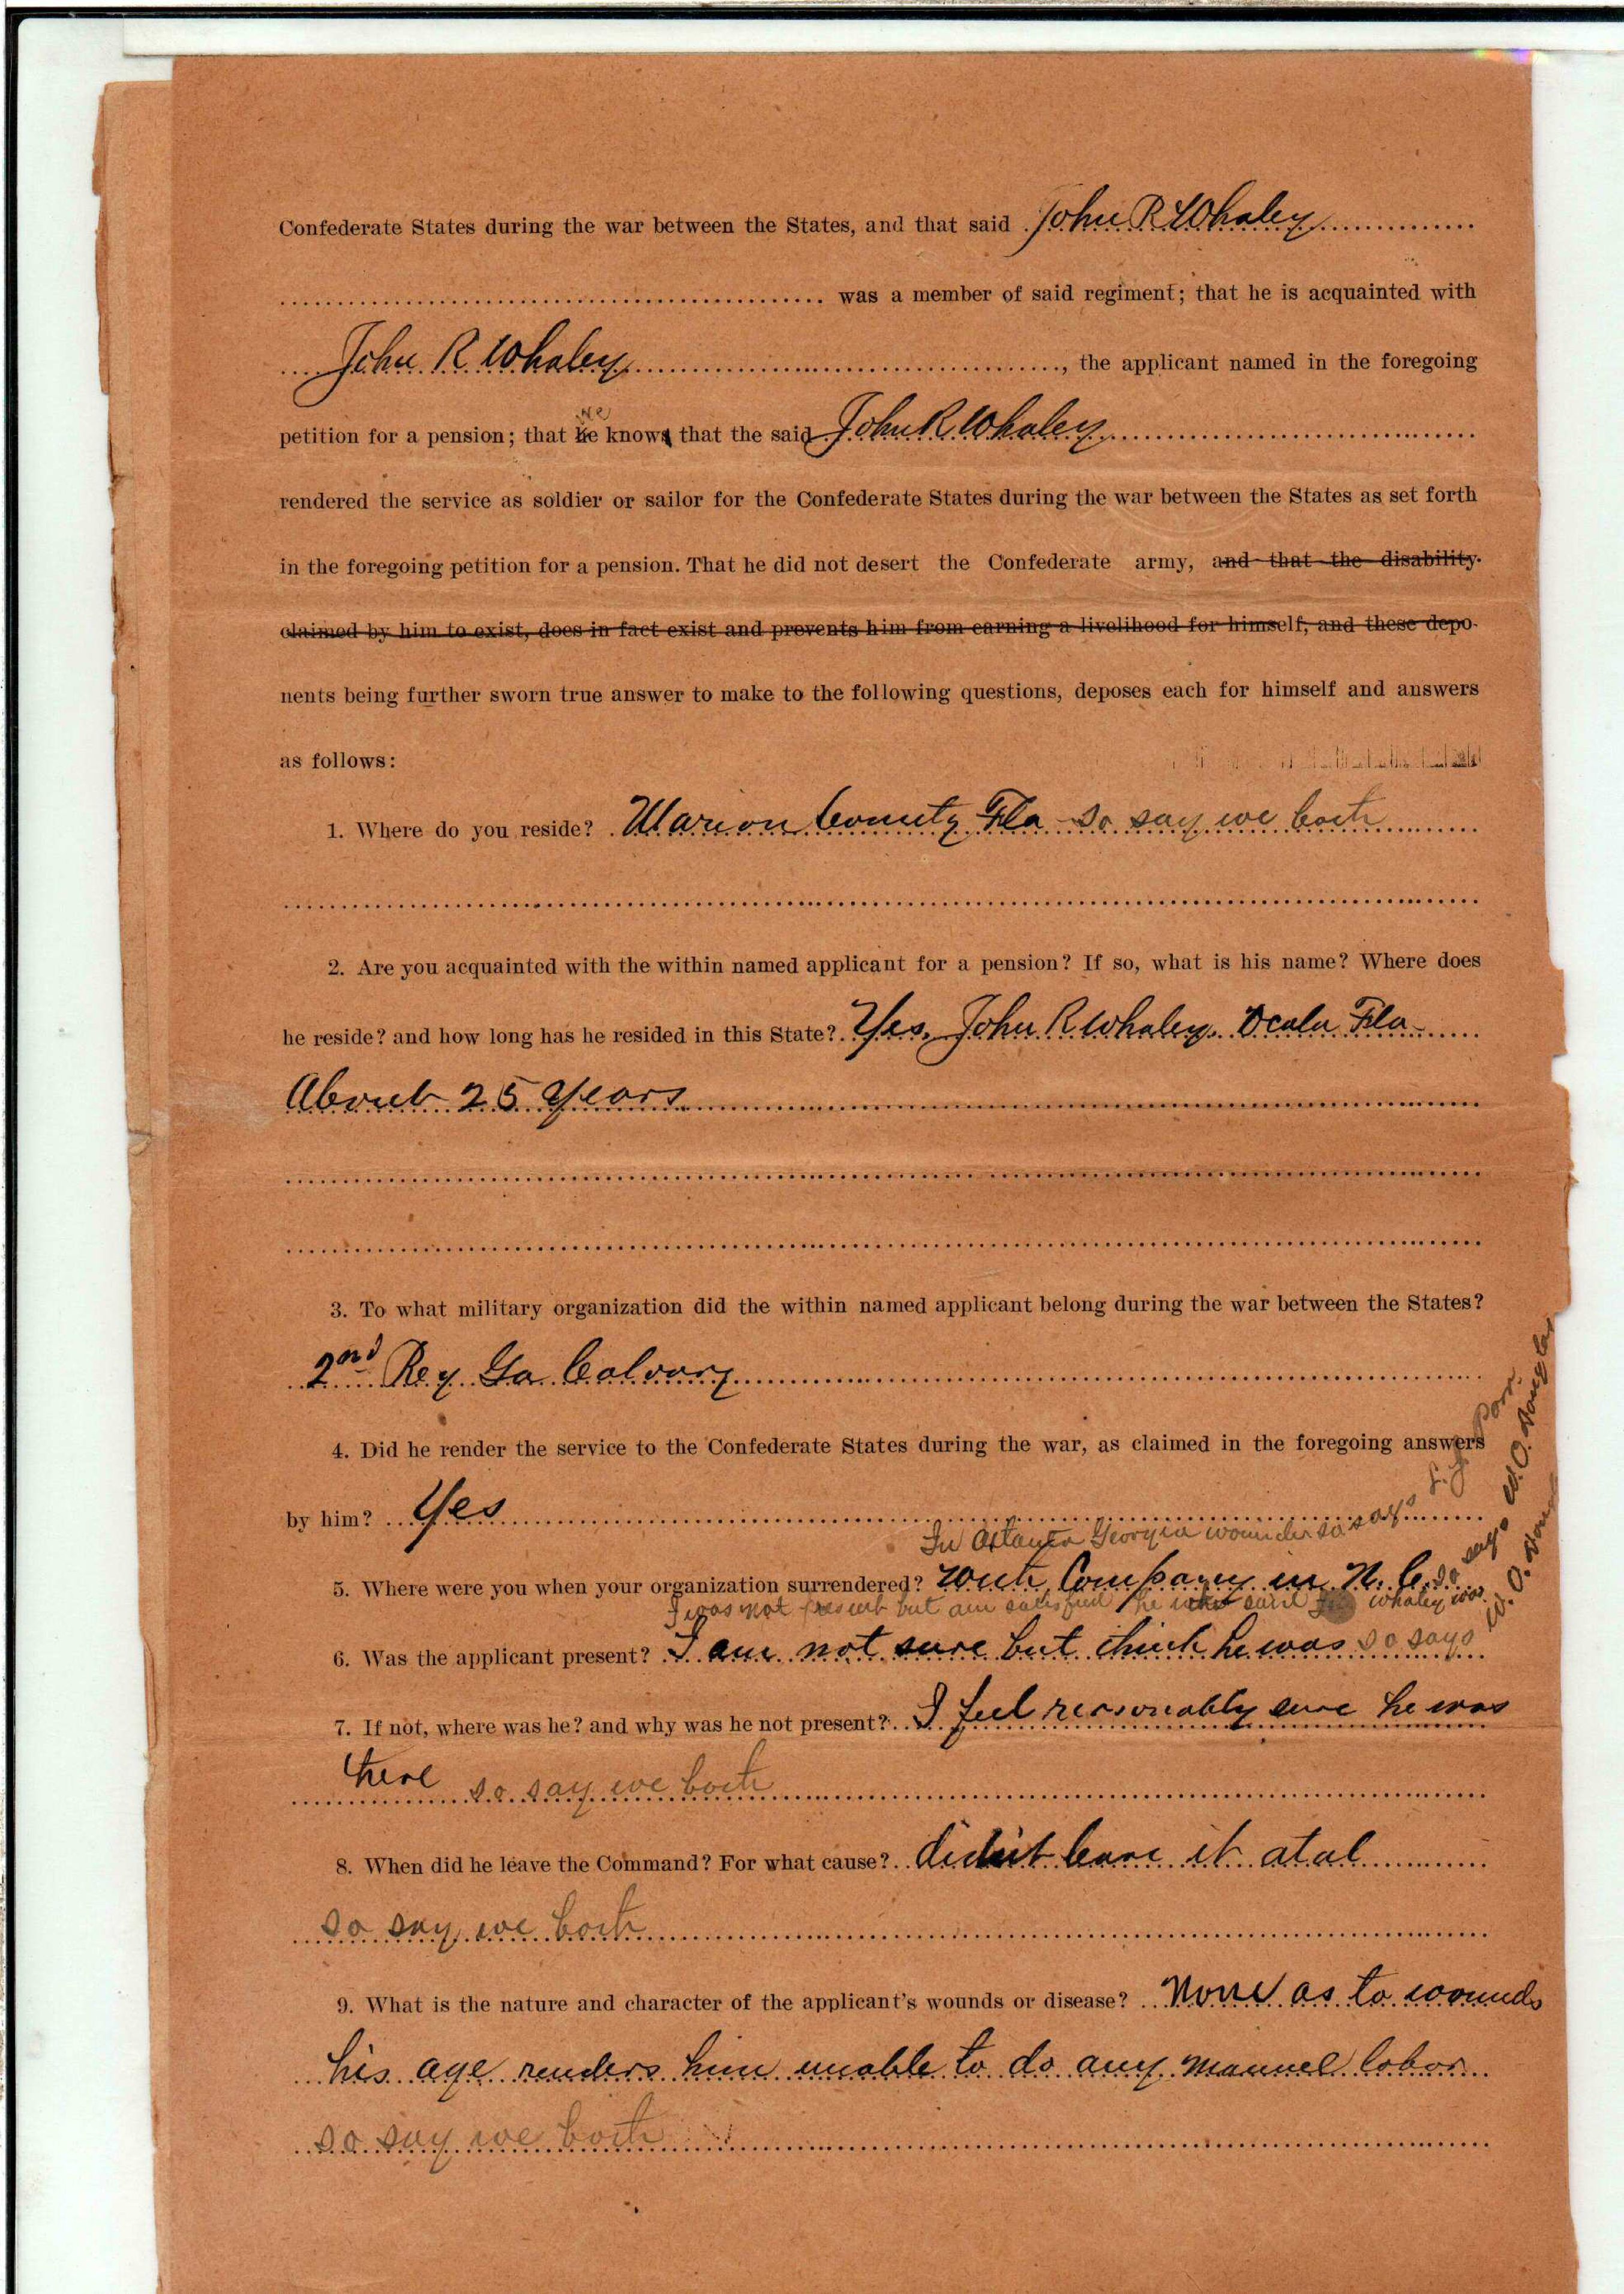 Confederate States during the war between the States, and that said John R Whaley
was a member of said regiment; that he is acquainted with
John R Whaley, the applicant named in the foregoing
we
petition for a pension; that he knows that the said John R Whaley
rendered the service as soldier or sailor for the Confederate States during the war between the States as set forth
in the foregoing petition for a pension. That he did not desert the Confederate army, and that the disability
claimed by him to exist, does in fact exist and prevents him from earning a livelihood for himself, and these depo-
nents being further sworn true answer to make to the following questions, deposes each for himself and answers
as follows:
1. Where do you reside? Marion County Fla so say we both
2. Are you acquainted with the within named applicant for a pension? If so, what is his name? Where does
he reside? and how long has he resided in this State? Yes, John R Whaley. Ocala Fla
About 25 years
3. To what military organization did the within named applicant belong during the war between the States?
2nd Reg Ga Calvary
4. Did he render the service to the Confederate States during the war, as claimed in the foregoing answers
by him? Yes
In Atlanta Georgia wounded so says
5. Where were you when your organization surrendered? With Company in N. C. so says W. O.
I was not present but am satisfied he Whaley was
6. Was the applicant present? I am not sure but think he was so says W. O.
7. If not, where was he? and why was he not present? I feel reasonably sure he was
there so say we both
8. When did he leave the Command? For what cause? didnt leave it atal
so say we both
9. What is the nature and character of the applicant's wounds or disease? None as to wounds
his age renders him unable to do any manuel labor
so say we both